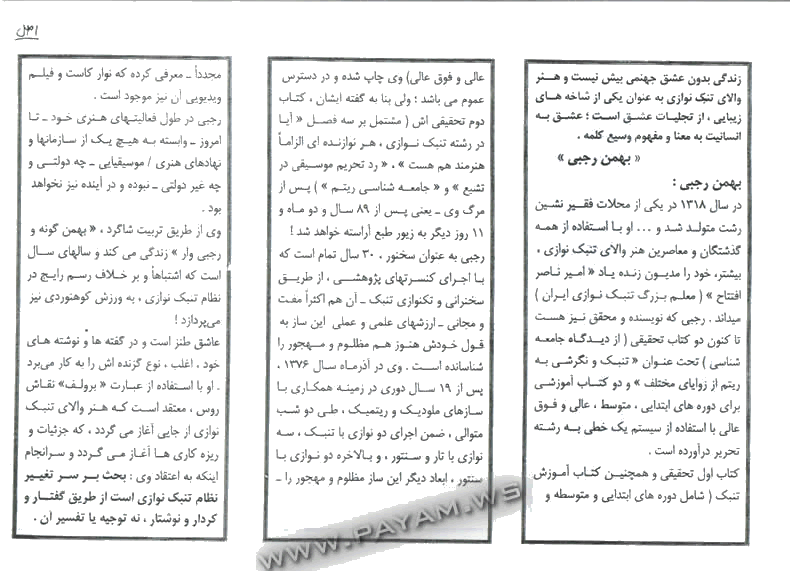 زندگی بدون عشق جهنمی بیش نیست و هنر
والای تنبک نوازی به عنوان یکی از شاخه های
زیبایی ، از تجلیات عشق است ؛ عشق به
انسانیت به معنا و مفهوم وسیع کلمه .
« بهمن رجبی »
بهمن رجبی :
در سال ۱۳۱۸ در یکی از محلات فقیر نشین
رشت متولد شد و ... او با استفاده از همه
گذشتگان و معاصرین هنر والای تنبک نوازی ،
بیشتر، خود را مدیون زنده یاد « امیر ناصر
افتتاح » ( معلم بزرگ تنبک نوازی ایران )
میداند . رجبی که نویسنده و محقق نیز هست
تا کنون دو کتاب تحقیقی ( از دیدگاه جامعه
شناسی ) تحت عنوان « تنبک و نگرشی به
ریتم از زوایای مختلف » و دو کتاب آموزشی
برای دوره های ابتدایی ، متوسط ، عالی و فوق
عالی با استفاده از سیستم یک خطی به رشته
تحریر درآورده است .
کتاب اول تحقیقی و همچنین کتاب آموزش
تنبک ( شامل دوره های ابتدایی و متوسطه و
عالی و فوق عالی) وی چاپ شده و در دسترس
عموم می باشد ؛ ولی بنا به گفته ایشان ، کتاب
دوم تحقیقی اش ( مشتمل بر سه فصل « آیا
در رشته تنبک نوازی ، هر نوازنده ای الزاماً
هنرمند هم هست » ، « رد تحریم موسیقی در
تشیع » و « جامعه شناسی ریتم » ) پس از
مرگ وی ـ یعنی پس از ۸۹ سال و دو ماه و
۱۱ روز دیگر به زیور طبع آراسته خواهد شد !
رجبی به عنوان سخنور ، ۳۰ سال تمام است که
با اجرای کنسرتهای پژوهشی ، از طریق
سخنرانی و تکنوازی تنبک ـ آن هم اکثراً مفت
و مجانی ـ ارزشهای علمی و عملی این ساز به
قول خودش هنوز هم مظلوم و مهجور را
شناسانده است . وی در آذرماه سال ۱۳۷۶ ،
پس از ۱۹ سال دوری در زمینه همکاری با
سازهای ملودیک و ریتمیک ، طی دو شب
متوالی ، ضمن اجرای دو نوازی با تنبک ، سه
نوازی با تار و سنتور ، و بالاخره دو نوازی با
سنتور ، ابعاد دیگر این ساز مظلوم و مهجور را ـ
مجدداً ـ معرفی کرده که نوار کاست و فیلم
ویدیویی آن نیز موجود است .
رجبی در طول فعالیتهای هنری خود ـ تا
امروز ـ وابسته به هیچ یک از سازمانها و
نهادهای هنری / موسیقیایی ـ چه دولتی و
چه غیر دولتی ـ نبوده و در آینده نیز نخواهد
بود .
وی از طریق تربیت شاگرد ، «بهمن گونه و
رجبی وار » زندگی می کند و سالهای سال
است که اشتباهاً و بر خلاف رسم رایج در
نظام تنبک نوازی ، به ورزش کوهنوردی نیز
می‌پردازد !
عاشق طنز است و در گفته ها و نوشته های
خود ، اغلب ، نوع گزنده اش را به کار می‌برد
. او با استفاده از عبارت « برولف» نقاش
روس ، معتقد است که هنر والای تنبک
نوازی از جایی آغاز می گردد ، که جزئیات و
ریزه کاری ها آغاز می گردد و سرانجام
اینکه به اعتقاد وی : بحث بر سر تغییر
نظام تنبک نوازی است از طریق گفتار و
کردار و نوشتار ، نه توجیه یا تفسیر آن .
WWW.PAYAM.WS